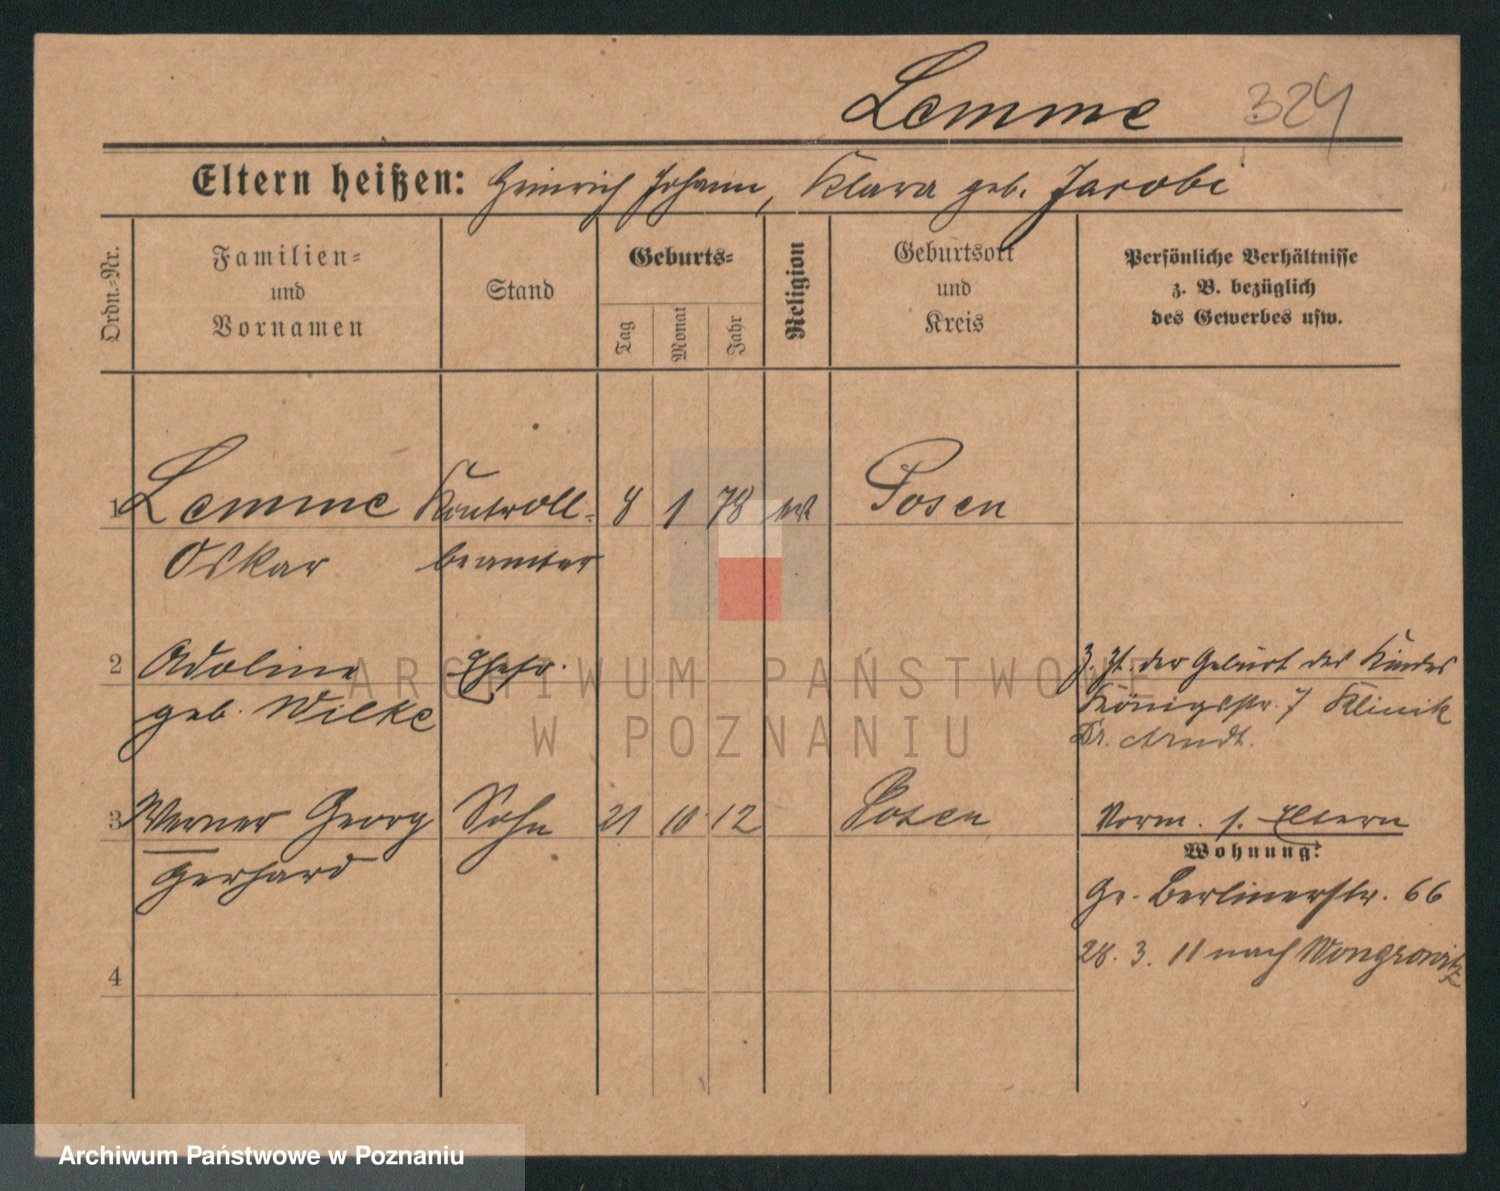 Lemme 324
Eltern heißen: Heinrich Johann, Klara geb. Jacobi
Ordn.-Nr.
Familien-
und
Vornamen
Stand
Geburts-
Tag
Monat
Jahr
Religion
Geburtsort
und
Kreis
Persönliche Verhältnisse
z. B. bezüglich
des Gewerbes usw.
1 Lemme Kontroll- 8 1 78 Posen
Oskar beamter
2 Adoline Ehefr. z. Zt. der Geburt des Kindes
geb. Wilke Königsstr. 7 Klinik
Dr. Arndt.
3 Werner Georg Sohn 21 10 12 Posen Vorm. s. Eltern
Gerhard
Wohnung:
Gr. Berlinerstr. 66
28. 3. 11 nach Wongrowitz
4
ARCHIWUM PAŃSTWOWE
W POZNANIU
Archiwum Państwowe w Poznaniu